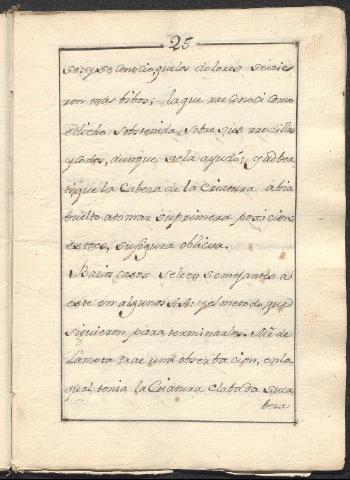 25
so: y se conocio, que los dolores se icie
ron mas bibos; la que rreconoci como
e dicho sostenida sobre sus rrodillas
y codos, aunque se la ayudó; y adber
ti que la Cabeza de la Criatura, abia
buelto a tomar su primera posicion
esto es, su figura oblicua.
Barios casos se leen semejantes a
este en algunos AA: y el metodo, que
siguieron para terminarlos. Mr. de
Lamota trae una obserbacion, en la
qual tenia la Criatura clabada su ca
beza